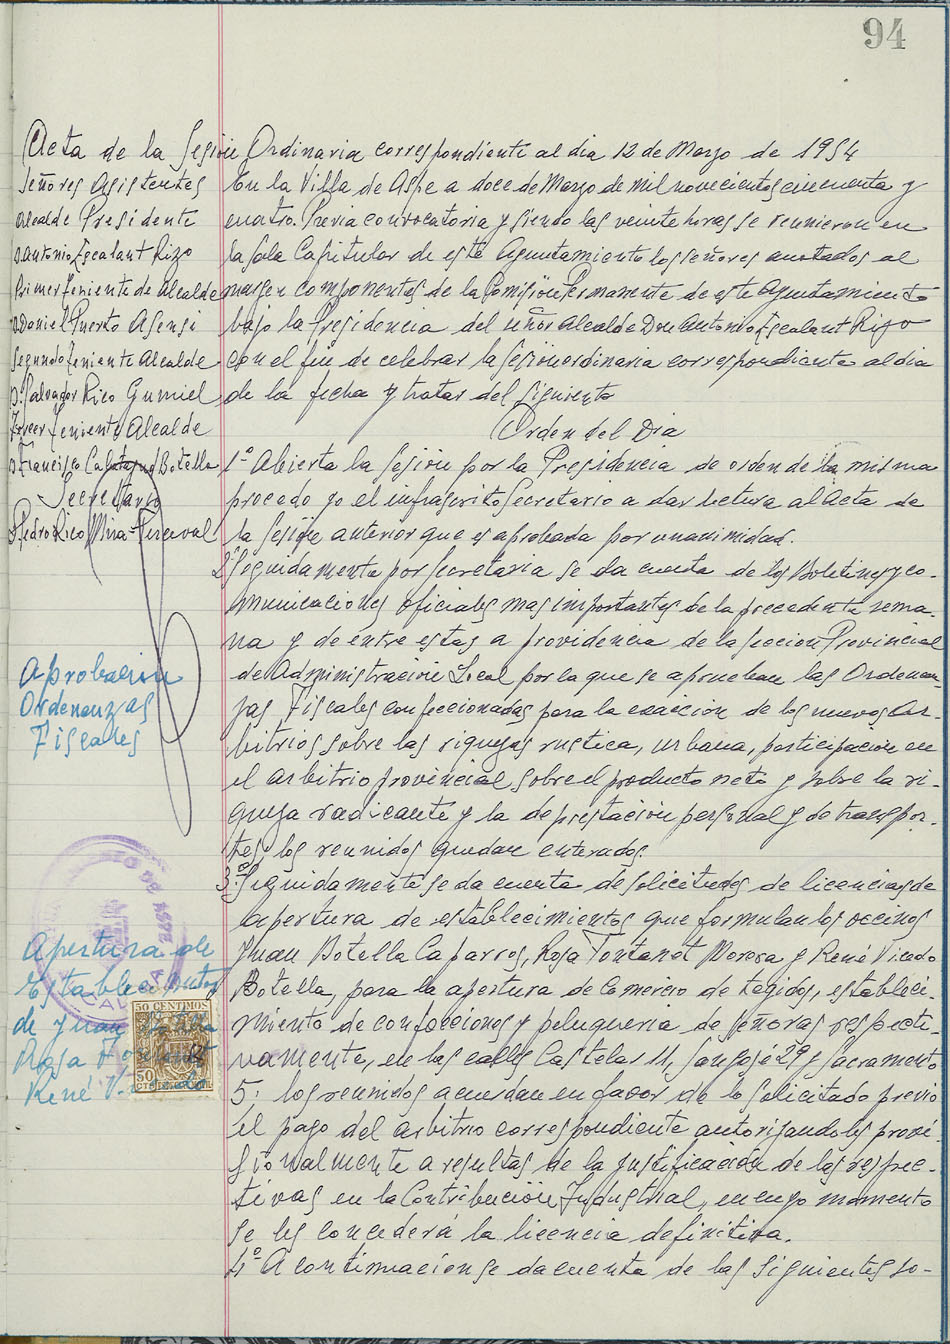 94
Acta de la Sesión Ordinaria correspondiente al dia 12 de Marzo de 1954
Señores Asistentes
Alcalde Presidente
D. Antonio Escalant Rizo
Primer Teniente de Alcalde
D. Daniel Puerto Asensi
Segundo Teniente Alcalde
D. Salvador Rico Gumiel
Tercer Teniente Alcalde
D. Francisco Calatayud Botella
Secretario
D. Pedro Rico Mira-Perceval
En la Villa de Aspe a doce de Marzo de mil novecientos cincuenta y
cuatro. Previa convocatoria y siendo las veinte horas se reunieron en
la Sala Capitular de este Ayuntamiento los señores anotados al
margen componentes de la Comisión Permanente de este Ayuntamiento
bajo la Presidencia del señor Alcalde Don Antonio Escalant Rizo
con el fin de celebrar la Sesión ordinaria correspondiente al dia
de la fecha y tratar del siguiente
Orden del Dia
1º Abierta la Sesión por la Presidencia de orden de la misma
procedo yo el infrascrito Secretario a dar lectura al Acta de
la Sesión anterior que es aprobada por unanimidad.
2º Seguidamente por Secretaria se da cuenta de los Boletines y co-
municaciones oficiales mas importantes de la precedente sema-
na y de entre estas a providencia de la Seccion Provincial
de Administración Local por la que se aprueban las Ordenan-
zas Fiscales confeccionadas para la exacción de los nuevos Ar-
bitrios sobre las riquezas rustica, urbana, participación en
el arbitrio provincial sobre el producto neto y sobre la ri-
queza radicante y la de prestación personal y de transpor-
tes, los reunidos quedan enterados.
Aprobación
Ordenanzas
Fiscales
3º Seguidamente se da cuenta de solicitudes de licencias de
apertura de establecimientos que formulan los vecinos
Juan Botella Caparros, Rosa Fontanet Morosa y René Vicedo
Botella, para la apertura de Comercio de tejidos, estableci-
miento de confecciones y peluqueria de señoras respecti-
vamente, en las calles Castelar 11, San José 29 y Sacramento
5. los reunidos acuerdan en favor de lo Solicitado previo
el pago del arbitrio correspondiente autorizandoles provi-
sionalmente a resultas de la justificación de las respec-
tivas en la Contribución Industrial, en cuyo momento
se les concederá la licencia definitiva.
Apertura de
Establecimientos
de Juan Botella
Rosa Fontanet
René
DE ASPE
50 CENTIMOS
50
CTS
4º A continuación se da cuenta de las siguientes so-